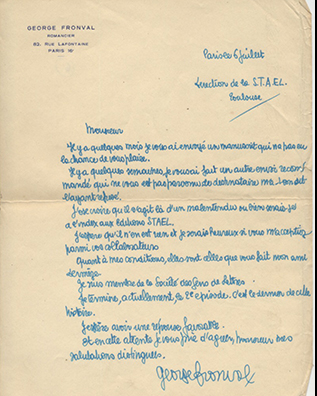 GEORGE FRONVAL
ROMANCIER
92, RUE LAFONTAINE
PARIS 16e
Paris le 6 Juillet
Direction de la S.T.A.E.L.
Toulouse
Monsieur
Il y a quelques mois je vous ai envoyé un manuscrit qui n'a pas eu
la chance de vous plaire.
Il y a quelques semaines, je vous ai fait un autre envoi recom
mandé qui ne vous est pas parvenu, le destinataire
l'ayant refusé.
J'ose croire qu'il s'agit là d'un malentendu ou bien serais-je
à l'index aux Editions STAEL.
J'espère qu'il n'en est rien et je serais heureux si vous m'acceptiez
parmi vos collaborateurs
Quant à mes conditions, elles sont celles que vous fait mon ami
Je suis membre de la Société des Gens de Lettres
Je termine, actuellement, le 2e épisode. c'est le dernier de cette
histoire.
J'espère avoir une réponse favorable.
et en cette attente je vous prie d'agréer, monsieur mes
salutations distinguées.
George Fronval